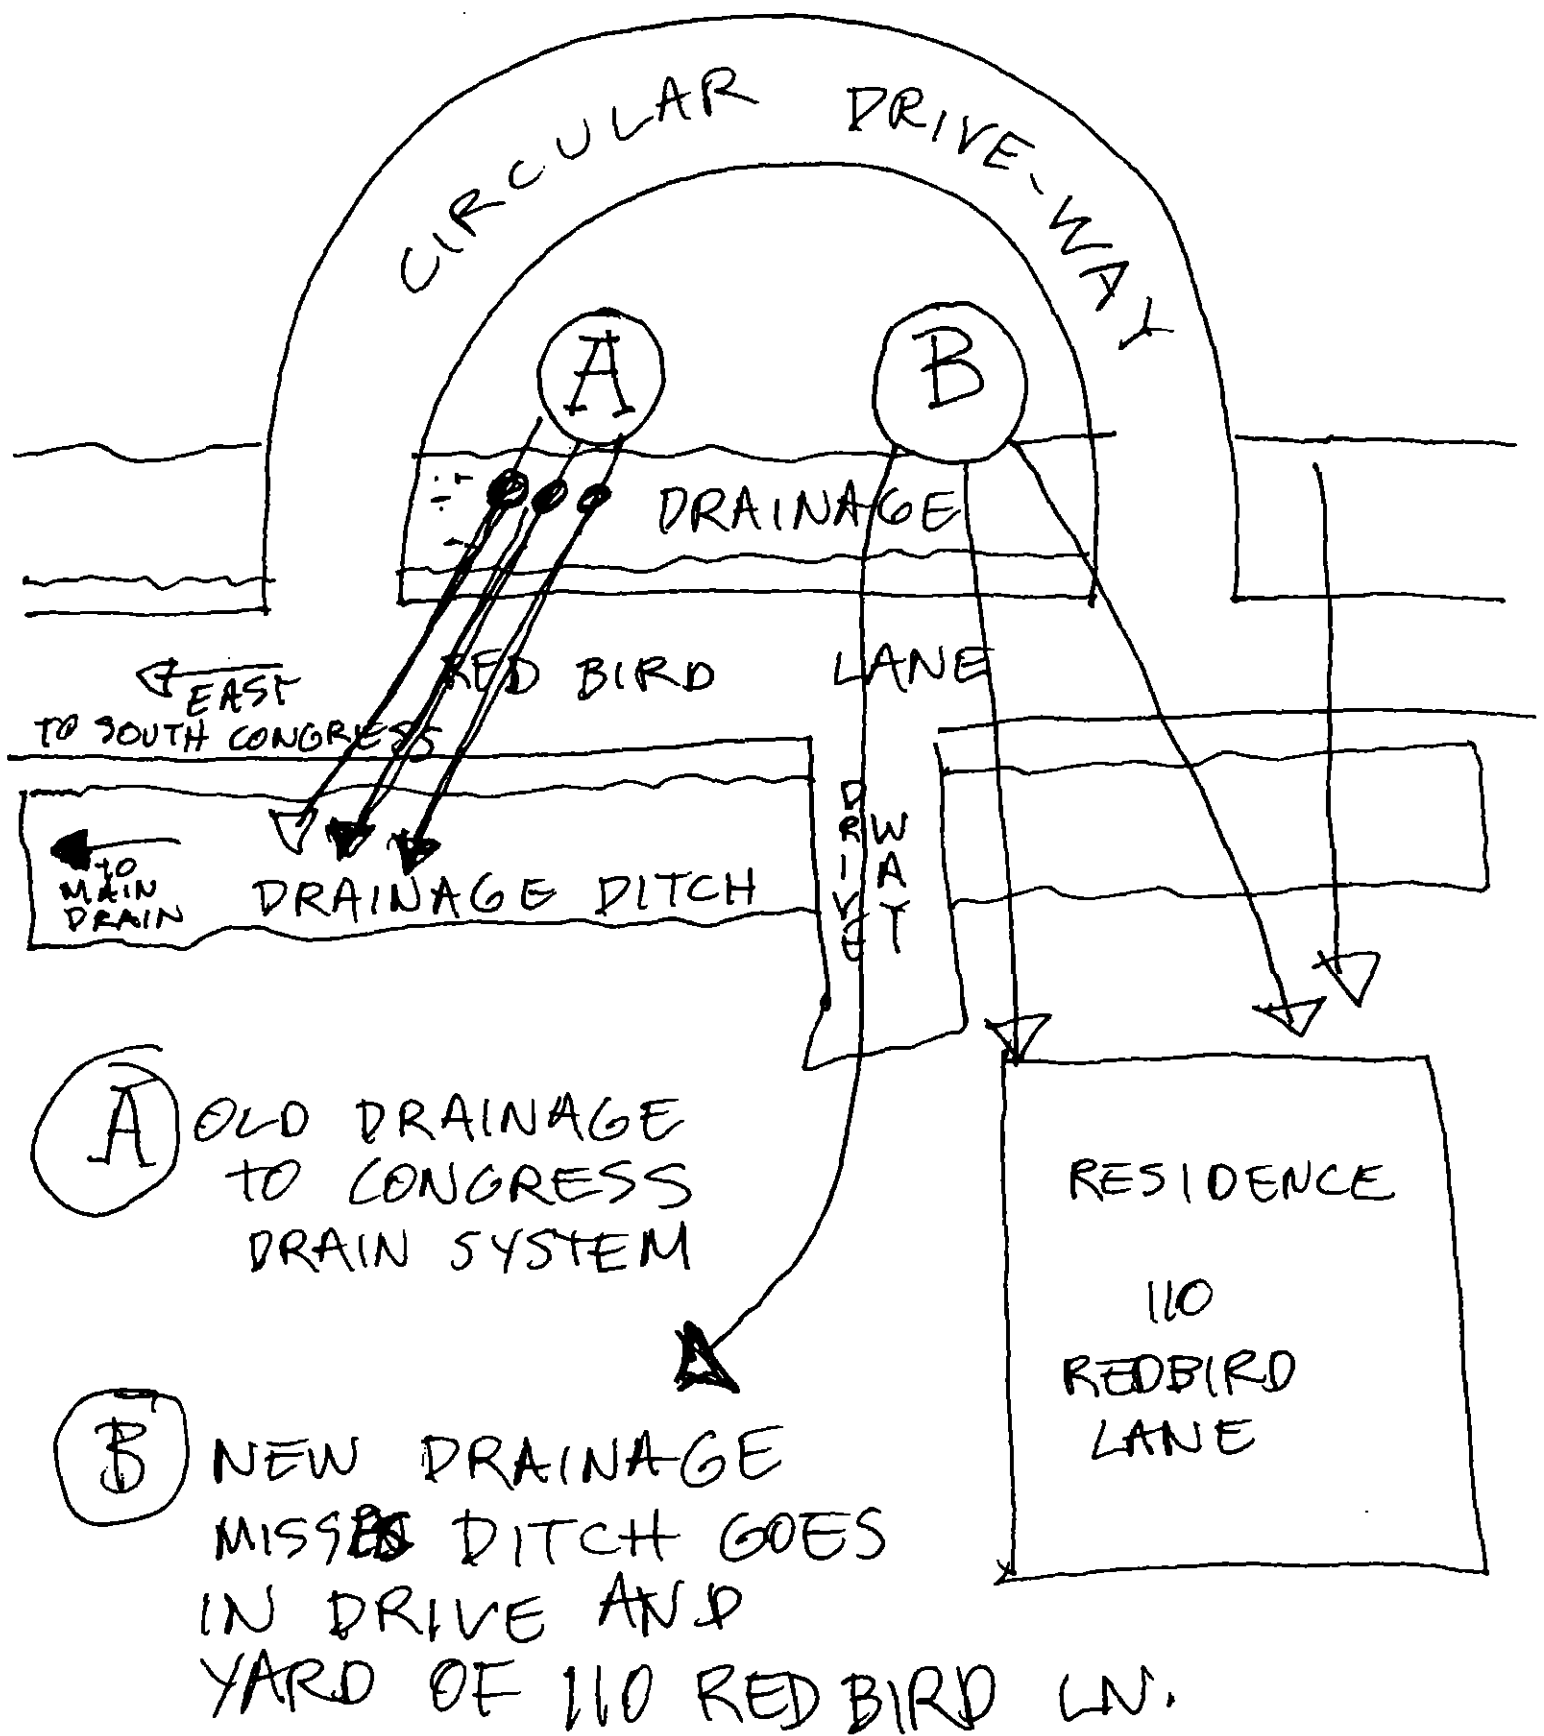 CIRCULAR DRIVE-WAY
A
B
DRAINAGE
RED BIRD LANE
EAST
TO SOUTH CONGRESS
DRIVE
WAY
TO
MAIN
DRAIN
DRAINAGE DITCH
A OLD DRAINAGE
TO CONGRESS
DRAIN SYSTEM
RESIDENCE
110
REDBIRD
LANE
B NEW DRAINAGE
MISSES DITCH GOES
IN DRIVE AND
YARD OF 110 RED BIRD LN.